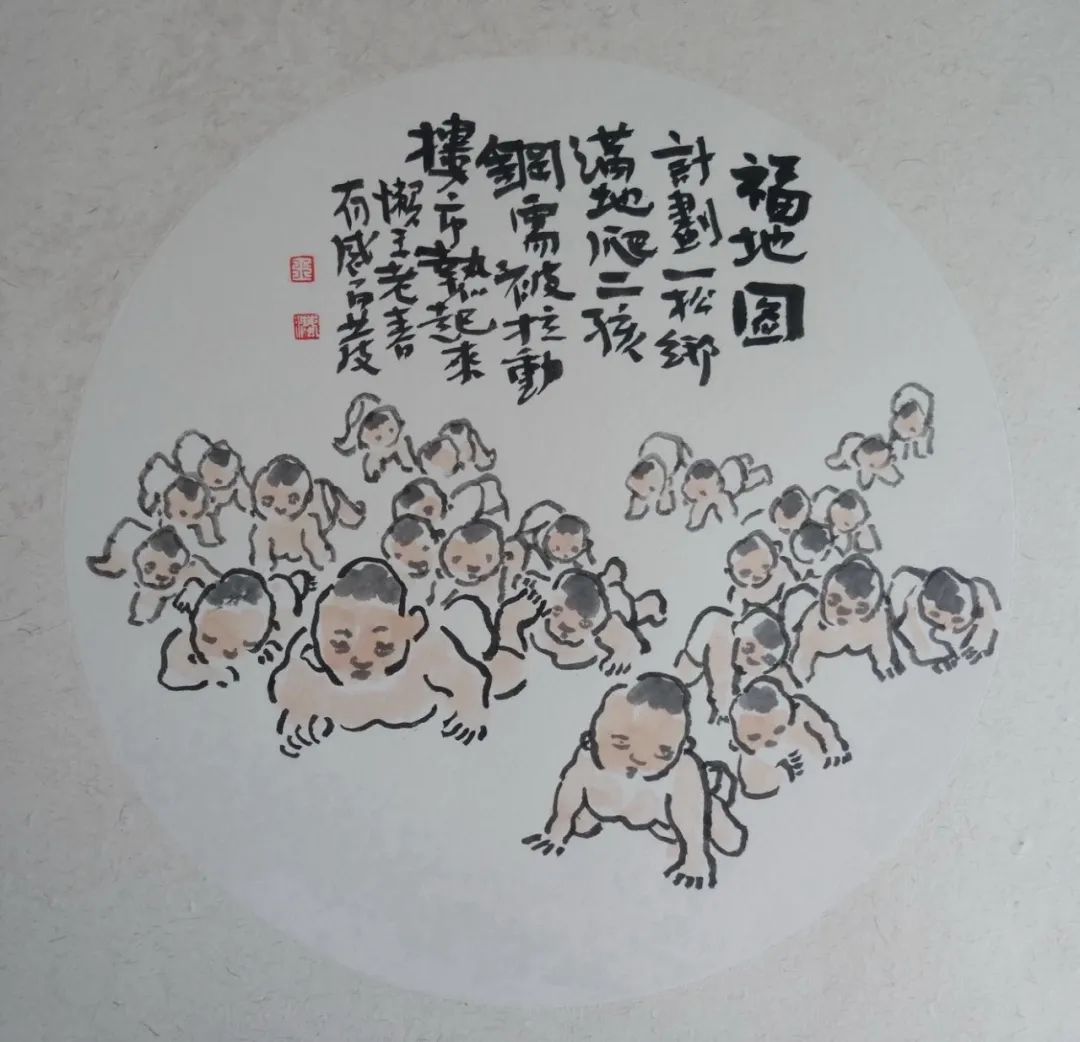 福地圖
計劃一松綁
滿地爬二孩
鋼需被拉動
樓市熱起來
懶王老春
有感而